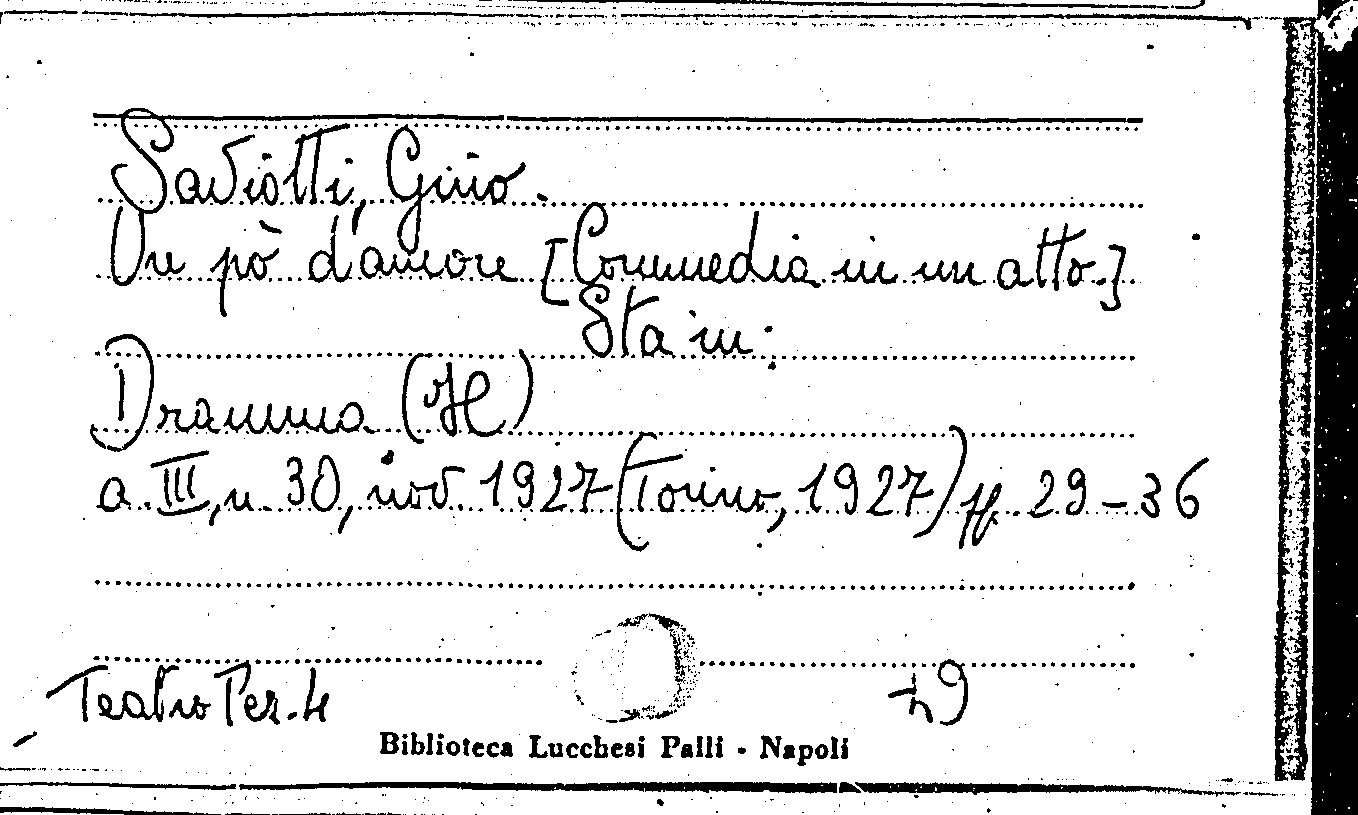 Saviotti, Gino.
Un pò d'amore [Commedia in un atto.]
Sta in:
Dramma (Il)
a. III, n. 30, nov. 1927 (Torino, 1927) pp. 29-36
Teatro Per. 4
49
Biblioteca Lucchesi Palli - Napoli